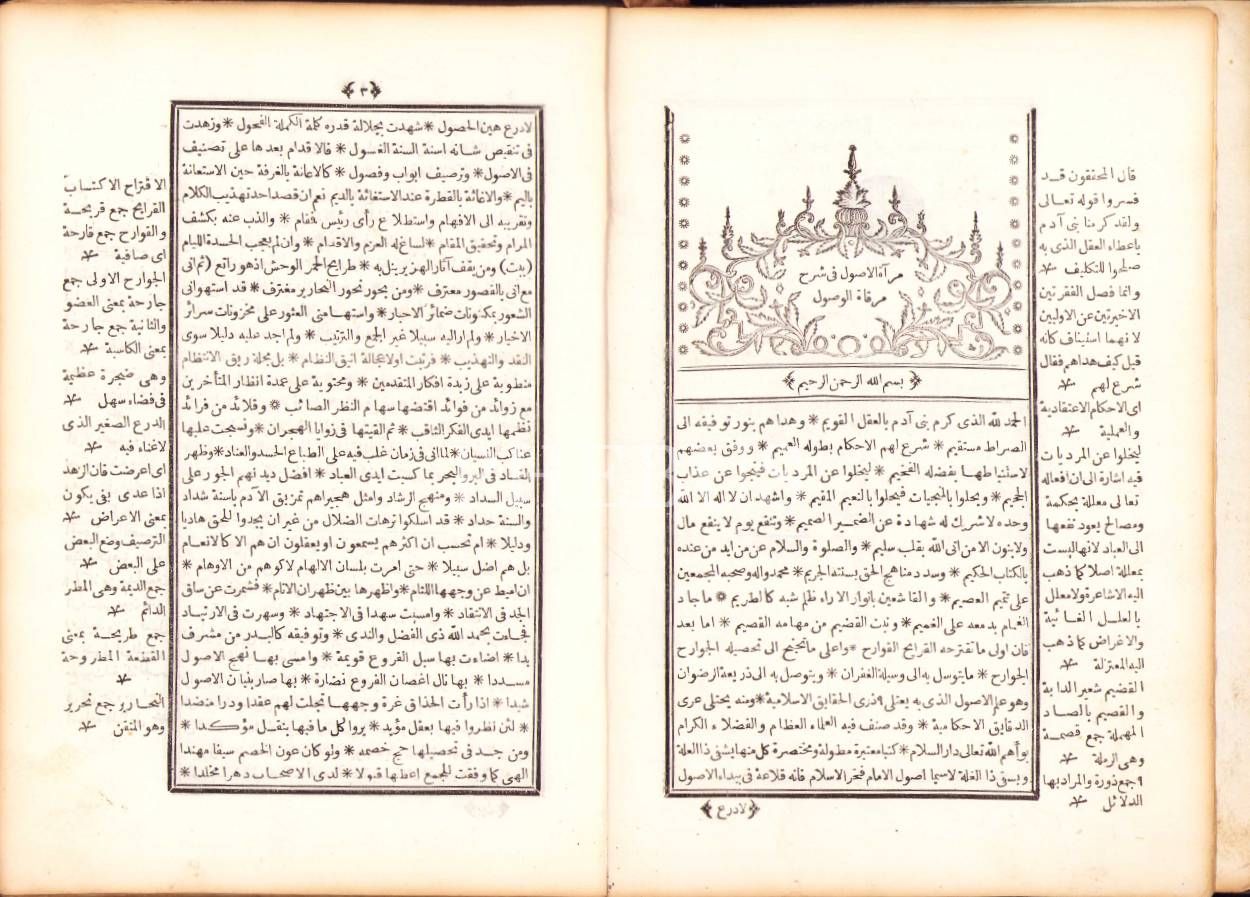 مرآة الاصول فى شرح
مرقاة الوصول
بسم الله الرحمن الرحيم
الحمد لله الذى كرم بنى آدم بالعقل القويم * وهداهم بنور توفيقه الى
الصراط مستقيم * شرع لهم الاحكام بطوله العميم * ووفق بعضهم
لاستنباطها بفضله الفخيم * ليتخلوا عن المرديات فينجوا عن عذاب
الجحيم * ويحلوا بالمنجيات فيحلوا بالنعيم المقيم * واشهد ان لا اله الا الله
وحده لا شريك له شهادة عن الضمير الصميم * وتنفع يوم لا ينفع مال
ولا بنون الا من اتى الله بقلب سليم * والصلوة والسلام عن من ايد من عنده
بالكتاب الحكيم * وسدد مناهج الحق بسنته الجريم * محمد وآله وصحبه المجمعين
على تتميم العصيم * والقاشعين بانوار الاراء ظلم شبه كالطريم * ما جاد
الغمام بدمعه على الغميم * ونبت القضيم من مهامه القصيم * اما بعد
فان اولى ما تقترحه القرايح القوارح * واعلى ما تجنح الى تحصيله الجوارح
الجوارح * ما يتوسل به الى وسيلة الغفران * ويتوصل به الى ذريعة الرضوان
وهو علم الاصول الذى به يعتلى ٩ ذرى الحقايق الاسلامية * ومنه يجتلى عرى
الدقايق الاحكامية * وقد صنف فيه العلماء العظام والفضلاء الكرام
بوأهم الله تعالى دار السلام * كتبا معتبرة مطولة ومختصرة كل منها يشفى ذا العلة
ويسقى ذا الغلة لاسيما اصول الامام فخر الاسلام فانه قلاعة فى بيداء الاصول
لادرع
قال المحققون قد
فسروا قوله تعالى
ولقد كرمنا بنى آدم
باعطاء العقل الذى به
صلحوا للتكليف
وانما فصل الفقرتين
الاخيرتين عن الاوليين
لانهما استيناف كانه
قيل كيف هداهم فقال
شرع لهم
اى الاحكام الاعتقادية
والعملية
ليتخلوا عن المرديات
فيه اشارة الى ان افعاله
تعالى معللة بحكمة
ومصالح يعود نفعها
الى العباد لانها ليست
بمعللة اصلا كما ذهب
اليه الاشاعرة ولا معلل
بالعلل الغائية
والاغراض كما ذهب
اليه المعتزلة
القضيم شعير الدابة
والقصيم بالصاد
المهملة جمع قصمة
وهى الرملة
٩ جمع ذورة والمراد بها
الدلائل
٣
لادرع هين الحصول * شهدت بجلالة قدره كلمة الكملة الفحول * وزهدت
فى تنقيص شانه اسنة السنة الغسول * فالاقدام بعدها على تصنيف
فى الاصول * وترصيف ابواب وفصول * كالاعانة بالغرفة حين الاستعانة
باليم * والاغاثة بالقطرة عند الاستغاثة بالديم نعم ان قصد احد تهذيب الكلام
وتقريبه الى الافهام واستطلاع رأى رئيس فقام * والذب عنه بكشف
المرام وتحقيق المقام * لساغ له العزم والاقدام * وان لم يعجب الحسدة اللئام
(بيت) ومن يقف آثار الهزبر ينل به * طرايح الحمر الوحش اذ هو راتع (ثم انى
مع انى بالقصور معترف * ومن بحور نحور النحارير مغترف * قد استهوانى
الشعور بمكنونات ضمائر الاحبار * واستهامنى العثور على مخزونات سرائر
الاخيار * ولم ار اليه سبيلا غير الجمع والترتيب * ولم اجد عليه دليلا سوى
النقد والتهذيب * فرتبت اولا عجالة انيق النظام * بل مجلة ريق الانتظام
منطوية على زبدة افكار المتقدمين * ومحتوية على عمدة انظار المتأخرين
مع زوائد من فوائد اقتضها سهام النظر الصائب * وقلائد من فرائد
نظمها ايدى الفكر الثاقب * ثم القيتها فى زوايا الهجران * ونسجت عليها
عناكب النسيان * لما انى فى زمان غلب فيه على الطباع الحسد والعناد * وظهر
الفساد فى البر والبحر بما كسبت ايدى العباد * افضل ديدنهم الجور على
سبيل السداد * ومنهج الرشاد وامثل هجيراهم تمزيق الآدم باسنة شداد
والسنة حداد * قد اسلكوا ترهات الضلال من غير ان يجدوا للحق هاديا
ودليلا * ام تحسب ان اكثرهم يسمعون او يعقلون ان هم الا كالانعام
بل هم اضل سبيلا * حتى امرت بلسان الالهام لا كوهم من الاوهام *
ان اميط عن وجهها اللثام * واظهرها بين ظهران الانام * فشمرت عن ساق
الجد فى الانتقاد * وامسيت سهدا فى الاجتهاد * وسهرت فى الارتياد
فجاءت بحمد الله ذى الفضل والندى * وتوفيقه كالبدر من مشرف
بدا * اضاءت بها سبل الفروع قويمة * وامسى بها نهج الاصول
مسددا * بها نال اغصان الفروع نضارة * بها صار بنيان الاصول
شيدا * اذا رأت الحذاق غرة وجهها * تجلت لهم عقدا ودرا منضدا
* لئن نظروا فيها بعقل مؤيد * يروا كل ما فيها بنقل مؤكدا *
ومن جد فى تحصيلها حج خصمه * ولو كان عون الخصم سيفا مهندا
الهى كما وفقت للجمع اعطها قبولا * لدى الاصحاب دهرا مخلدا *
الاقتراح الاكتساب
القرايح جمع قريحة
والقوارح جمع قارحة
اى صافية
الجوارح الاولى جمع
جارحة بمعنى العضو
والثانية جمع جارحة
بمعنى الكاسبة
وهى صخرة عظيمة
فى فضاء سهل
الدرع الصغير الذى
لا غناء فيه
اى اعرضت فان الزهد
اذا عدى بفى يكون
بمعنى الاعراض
الترصيف وضع البعض
على البعض
جمع الديمة وهى المطر
الدائم
جمع طريحة بمعنى
القطعة المطروحة
النحارير جمع نحرير
وهو المتقن